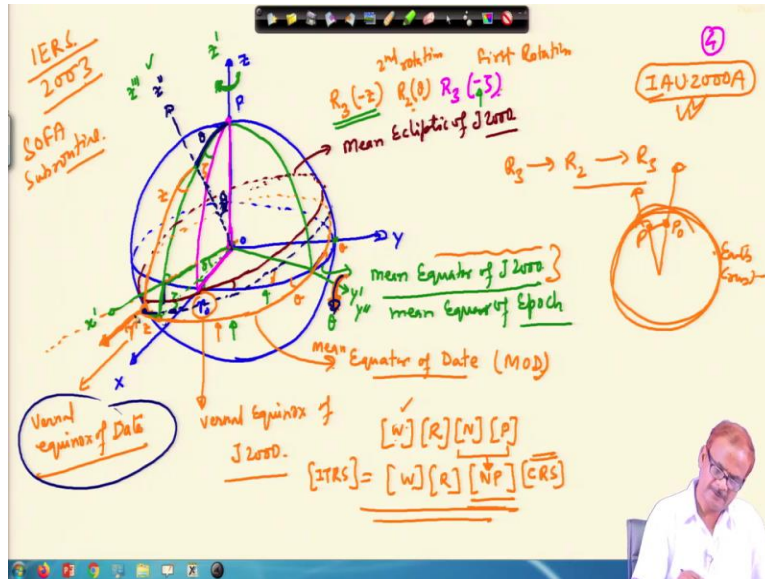 IERS.
2003
SOFA
Subroutine.
2nd rotation
First Rotation
R3(-z) R2(θ) R3(-ζ)
mean Ecliptic of J2000
IAU2000A
R3 → R2 → R3
P P0
z'
z''' z''
z
P
θ
ζ
z
O
Y
y'
y''
θ
x'
X
mean Equator of J2000
mean Equator of Epoch
mean Equator of Date (MOD)
Vernal
equinox of Date
Vernal Equinox of
J2000.
[W][R][N][P]
[ITRS] = [W][R][NP][CRS]